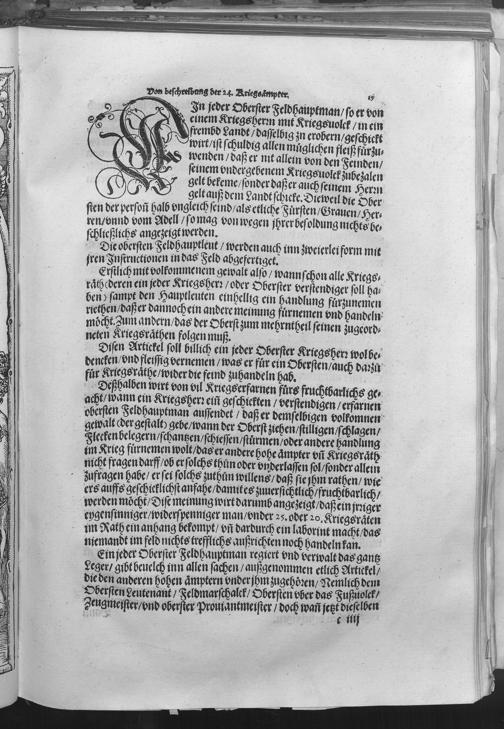 Von beschreibung der 24. Kriegsämpter. 19
EIn jeder Oberster Feldhauptman / so er von
einem Kriegsherrn mit Kriegsuolck / in ein
frembd Landt / dasselbig zu erobern / geschickt
wirt / ist schuldig allen müglichen fleiß fürzu-
wenden / daß er nit allein von den Feinden /
seinem vndergebenem Kriegsuolck zubezalen
gelt bekeme / sonder daß er auch seinem Herrn
gelt auß dem Landt schicke. Dieweil die Ober
sten der person halb vngleich seind / als etliche Fürsten / Grauen / Her-
ren / vnnd vom Adell / so mag von wegen jhrer besoldung nichts be-
schließlichs angezeigt werden.
Die obersten Feldhauptleut / werden auch inn zweierlei form mit
jren Instructionen in das Feld abgefertiget.
Erstlich mit volkommenem gewalt also / wann schon alle Kriegs-
räth (deren ein jeder Kriegsherr / oder Oberster verstendiger soll ha-
ben) sampt den Hauptleuten einhellig ein handlung fürzunemen
riethen / daß er dannoch ein andere meinung fürnemen vnd handeln
möcht. Zum andern / das der Oberst zum mehrntheil seinen zugeord-
neten Kriegsräthen folgen muß.
Disen Artickel soll billich ein jeder Oberster Kriegsherr wol be-
dencken / vnd fleissig vernemen / was er für ein Obersten / auch darzů
für Kriegsräthe / wider die feind zuhandeln hab.
Deßhalben wirt von vil Kriegserfarnen fürs fruchtbarlichs ge-
acht / wann ein Kriegsherr eiñ geschickten / verstendigen / erfarnen
obersten Feldhauptman aussendet / daß er demselbigen volkomnen
gewalt (der gestalt) gebe / wann der Oberst ziehen / stilligen / schlagen /
Flecken belegern / schantzen / schiessen / stürmen / oder andere handlung
im Krieg fürnemen wolt / das er andere hohe ämpter vñ Kriegsräth
nicht fragen darff / ob er solchs thůn oder vnderlassen sol / sonder allein
zufragen habe / er sei solchs zuthůn willens / daß sie jhm rathen / wie
ers auffs geschicklichst anfahe / damit es zuuersichtlich / fruchtbarlich /
werden möcht / Dise meinung wirt darumb angezeigt / daß ein jrriger
eygensinniger / widerspenniger man / vnder 25. oder 20. Kriegsräten
im Rath ein anhang bekompt / vñ dardurch ein laborint macht / das
niemandt im feld nichts trefflichs außrichten noch handeln kan.
Ein jeder Oberster Feldhauptman regiert vnd verwalt das gantz
Leger / gibt beuelch inn allen sachen / außgenommen etlich Artickel /
die den anderen hohen ämptern vnder jhm zugehören / Nemlich dem
Obersten Leutenant / Feldmarschalck / Obersten vber das Fußuolck /
Zeugmeister / vnd oberster Prouiantmeister / doch wañ jetzt dieselben
c iiij